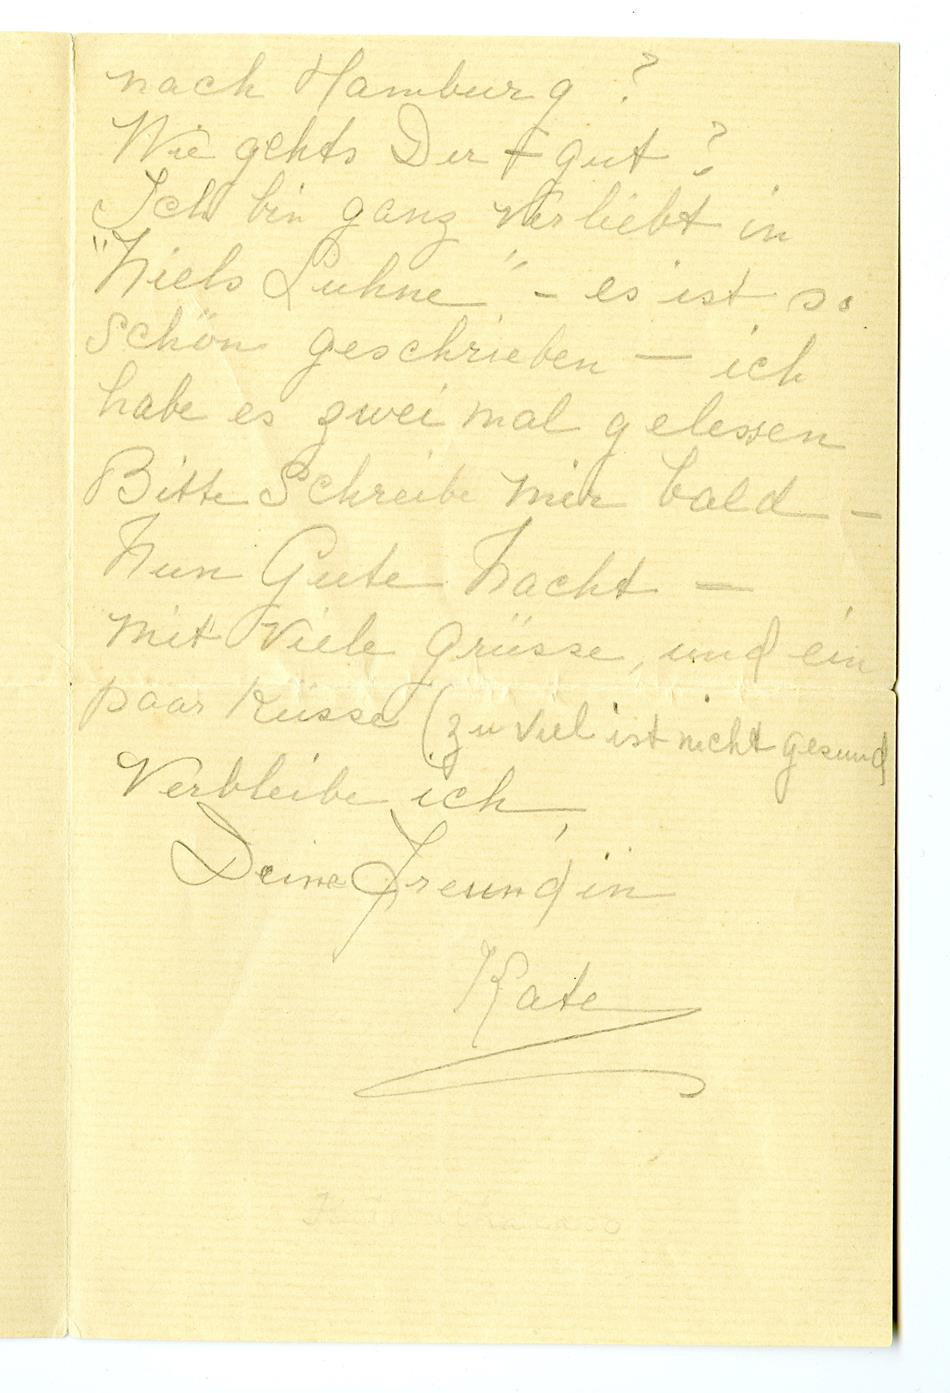 nach Hamburg?
Wie gehts Dir – gut?
Ich bin ganz verliebt in
"Niels Luhne" – es ist so
schön geschrieben – ich
habe es zwei mal gelessen
Bitte Schreibe mir bald –
Nun Gute Nacht –
Mit Viele Grüsse, und ein
paar Küsse (zu viel ist nicht gesund
Verbleibe ich,
Deine Freundin
Kate